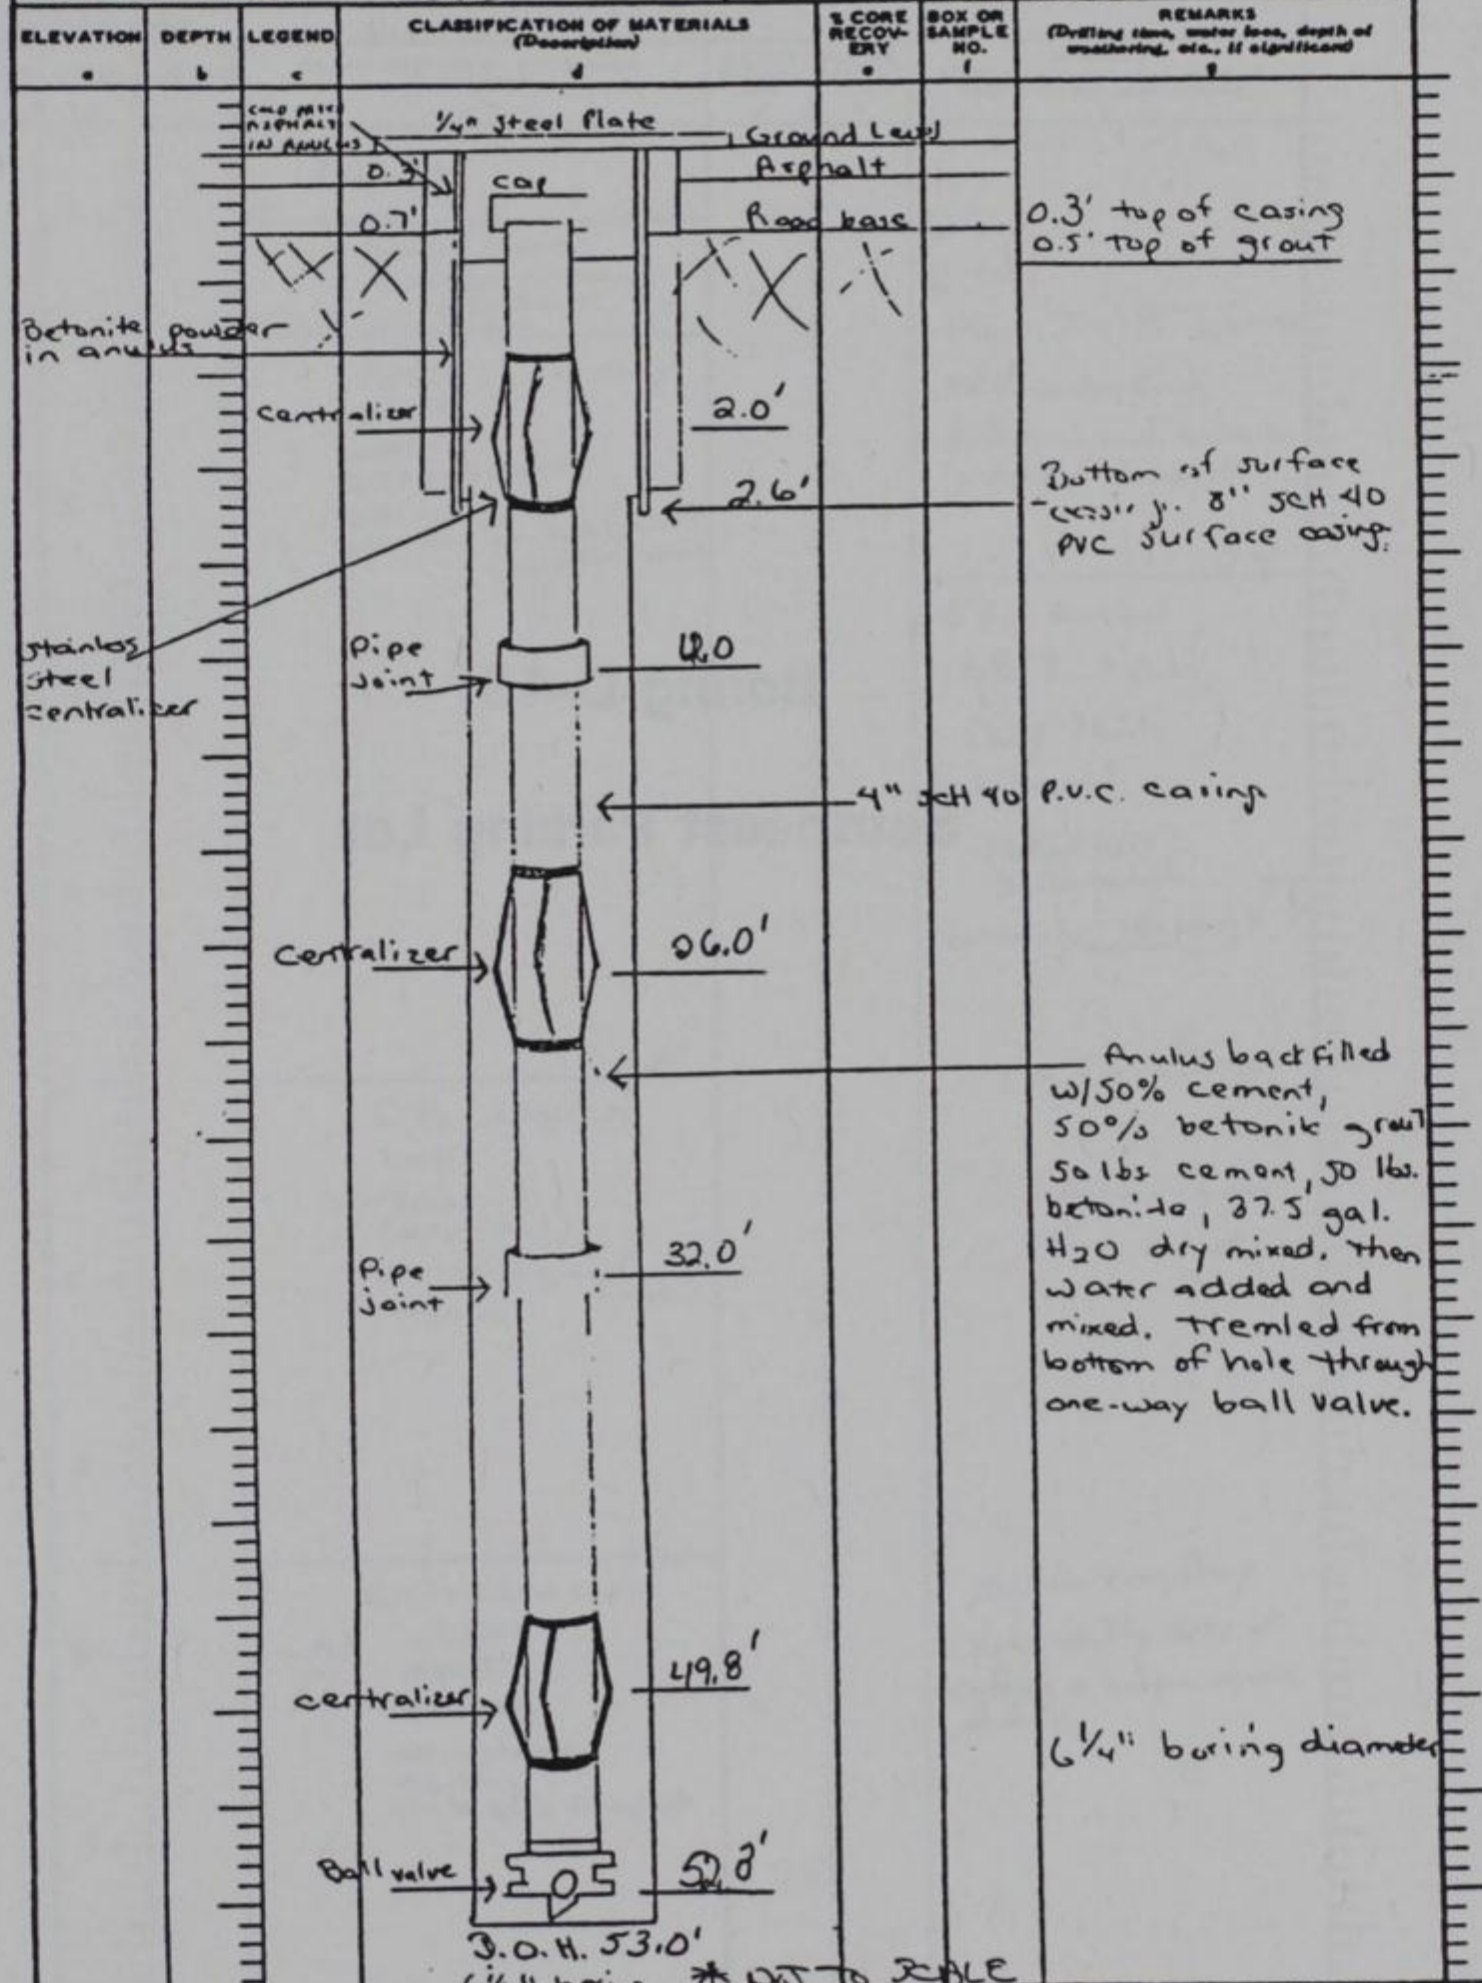 ELEVATION
DEPTH
LEGEND
CLASSIFICATION OF MATERIALS
(Description)
% CORE
RECOV-
ERY
BOX OR
SAMPLE
NO.
REMARKS
(Drilling time, water loss, depth of
weathering, etc., if significant)
a
b
c
d
e
f
g
ASPHALT
IN ANULUS
1/4" Steel Plate
Ground Level
0.3'
Asphalt
cap
0.7'
Road base
0.3' top of casing
0.5' top of grout
Betonite powder
in anulus
centralizer
2.0'
2.6'
Bottom of surface
8" SCH 40
PVC surface casing.
stainless
steel
centralizer
Pipe
joint
4" SCH 40 P.V.C. casing
Centralizer
26.0'
Anulus backfilled
w/50% cement,
50% betonite grout
50 lbs cement, 50 lbs.
betonite, 37.5 gal.
H2O dry mixed. Then
water added and
mixed. Tremled from
bottom of hole through
one-way ball valve.
Pipe
joint
32.0'
centralizer
49.8'
6 1/4" boring diameter
Ball valve
52.8'
B.O.H. 53.0'
* NOT TO SCALE